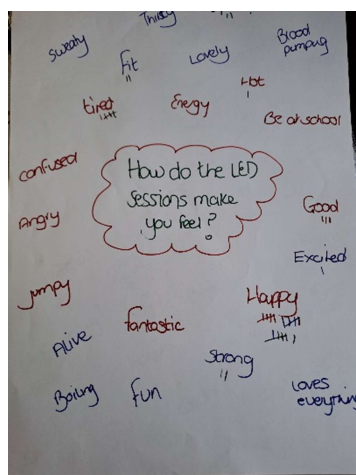 Thirsty
Sweaty
Fit
Lovely
Blood
pumping
Tired
Energy
Hot
Be at school
confused
How do the LED
sessions make
you feel?
Good
Angry
Excited
Jumpy
fantastic
Happy
Alive
Strong
Boiling
fun
Loves
everything